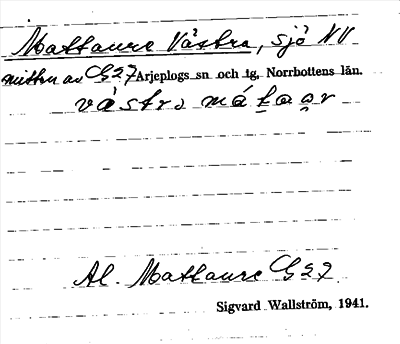 Mattaure Västra, sjö NV
mitten av G27 Arjeplogs sn och tg, Norrbottens län.
västra máṭaạr
Al. Mattaure G27
Sigvard Wallström, 1941.